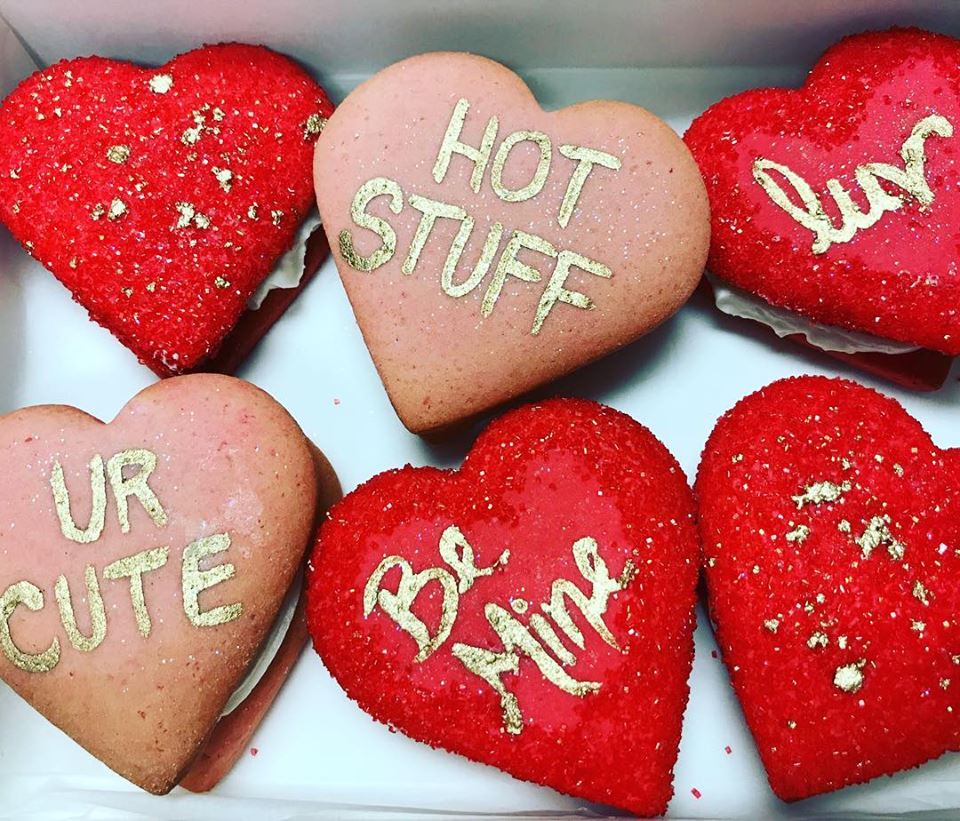 HOT
STUFF
luv
UR
CUTE
Be
Mine